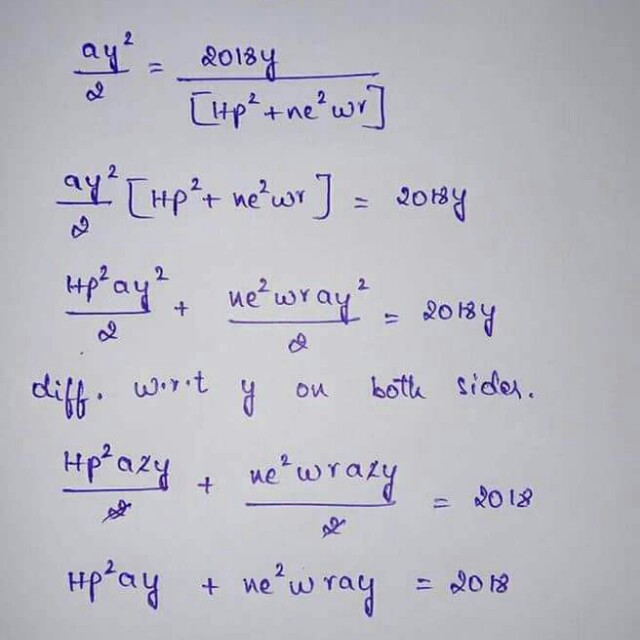 ay²/2 = 2018y/[Hp²+ne²wr]
ay²/2 [Hp²+ ne²wr] = 2018y
Hp²ay²/2 + ne²wray²/2 = 2018y
diff. w.r.t y on both sides.
Hp²a2y/2 + ne²wra2y/2 = 2018
Hp²ay + ne²wray = 2018